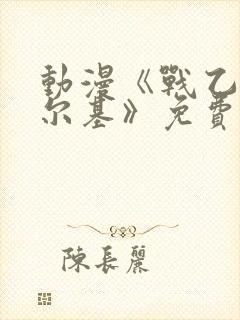 動漫《戰乙
尔基》免費
陳長麗